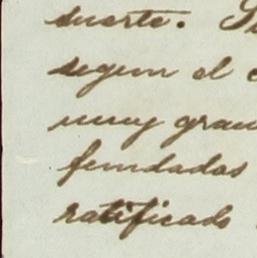 suerte. Si
segun el c
muy gran
fundadas
ratificado